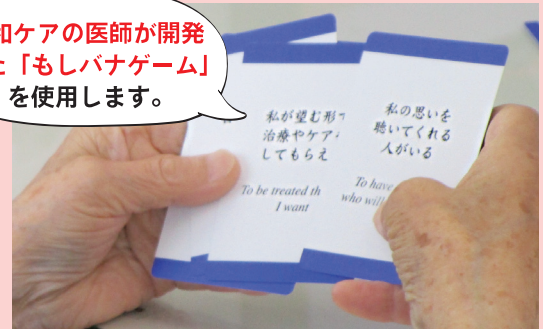 和ケアの医師が開発
「もしバナゲーム」
を使用します。
私が望む形で
治療やケア
してもらえ
To be treated th
I want
私の思いを
聴いてくれる
人がいる
To have
who will